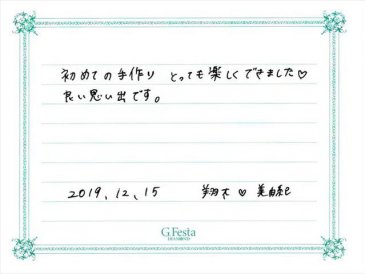 初めての手作り とっても楽しくできました♡
良い思い出です。
2019.12.15 翔太 ♡ 美由紀
G.Festa
DIAMOND